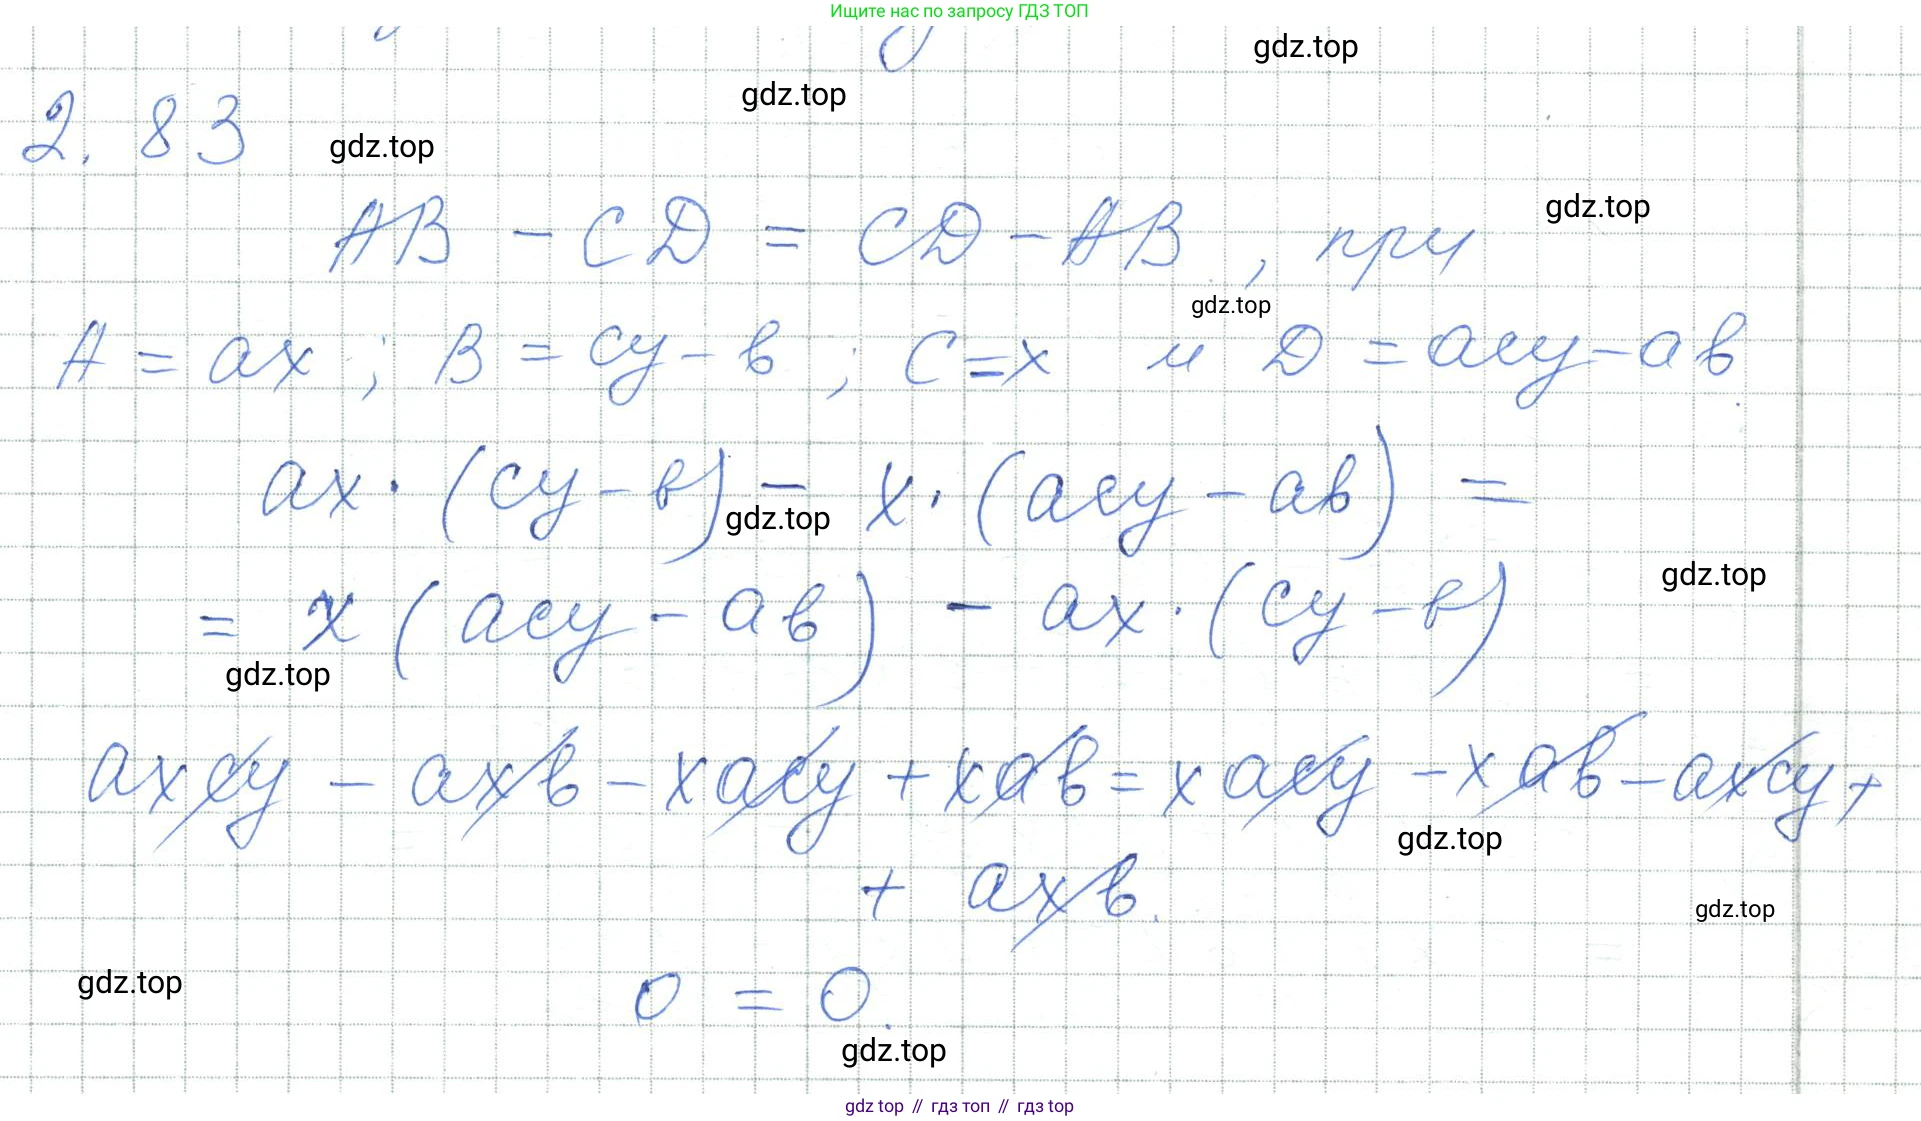 Ищите нас по запросу ГДЗ ТОП
gdz.top
gdz.top
2.83
gdz.top
AB - CD = CD - AB, при
gdz.top
gdz.top
A = ax; B = cy - в; C = x и D = acy - ав
ax · (cy - в) - x · (acy - ав) =
gdz.top
= x (acy - ав) - ax · (cy - в)
gdz.top
gdz.top
axcy - axв - xacy + xав = xacy - xав - axcy +
gdz.top
+ axв.
gdz.top
0 = 0.
gdz.top
gdz.top
gdz top // гдз топ // гдз top